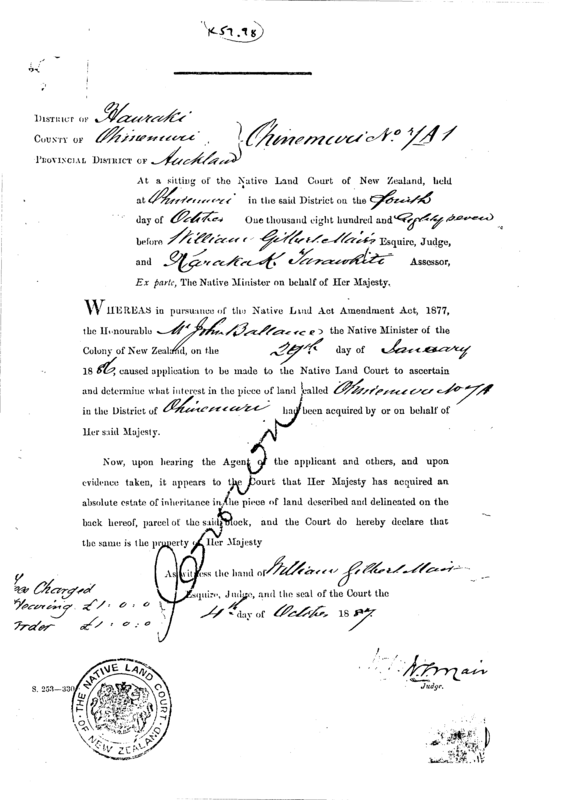 K57.78
DISTRICT OF Hauraki
COUNTY OF Ohinemuri
PROVINCIAL DISTRICT OF Auckland
Ohinemuri No 7A1
At a sitting of the Native Land Court of New Zealand, held
at Ohinemuri in the said District on the fourth
day of October One thousand eight hundred and eighty seven
before William Gilbert Mair Esquire, Judge,
and Karaka Tarawhiti Assessor,
Ex parte, The Native Minister on behalf of Her Majesty.
WHEREAS in pursuance of the Native Land Act Amendment Act, 1877,
the Honourable Mr John Ballance the Native Minister of the
Colony of New Zealand, on the 29th day of January
1886, caused application to be made to the Native Land Court to ascertain
and determine what interest in the piece of land called Ohinemuri No 7A
in the District of Ohinemuri had been acquired by or on behalf of
Her said Majesty.
Now, upon hearing the Agent of the applicant and others, and upon
evidence taken, it appears to the Court that Her Majesty has acquired an
absolute estate of inheritance in the piece of land described and delineated on the
back hereof, parcel of the said block, and the Court do hereby declare that
the same is the property of Her Majesty
As witness the hand of William Gilbert Mair
Esquire, Judge, and the seal of the Court the
4th day of October 1887
Fees Charged
Hearing £1:0:0
Order £1:0:0
W G Mair
Judge.
S. 253—330
THE NATIVE LAND COURT
OF NEW ZEALAND